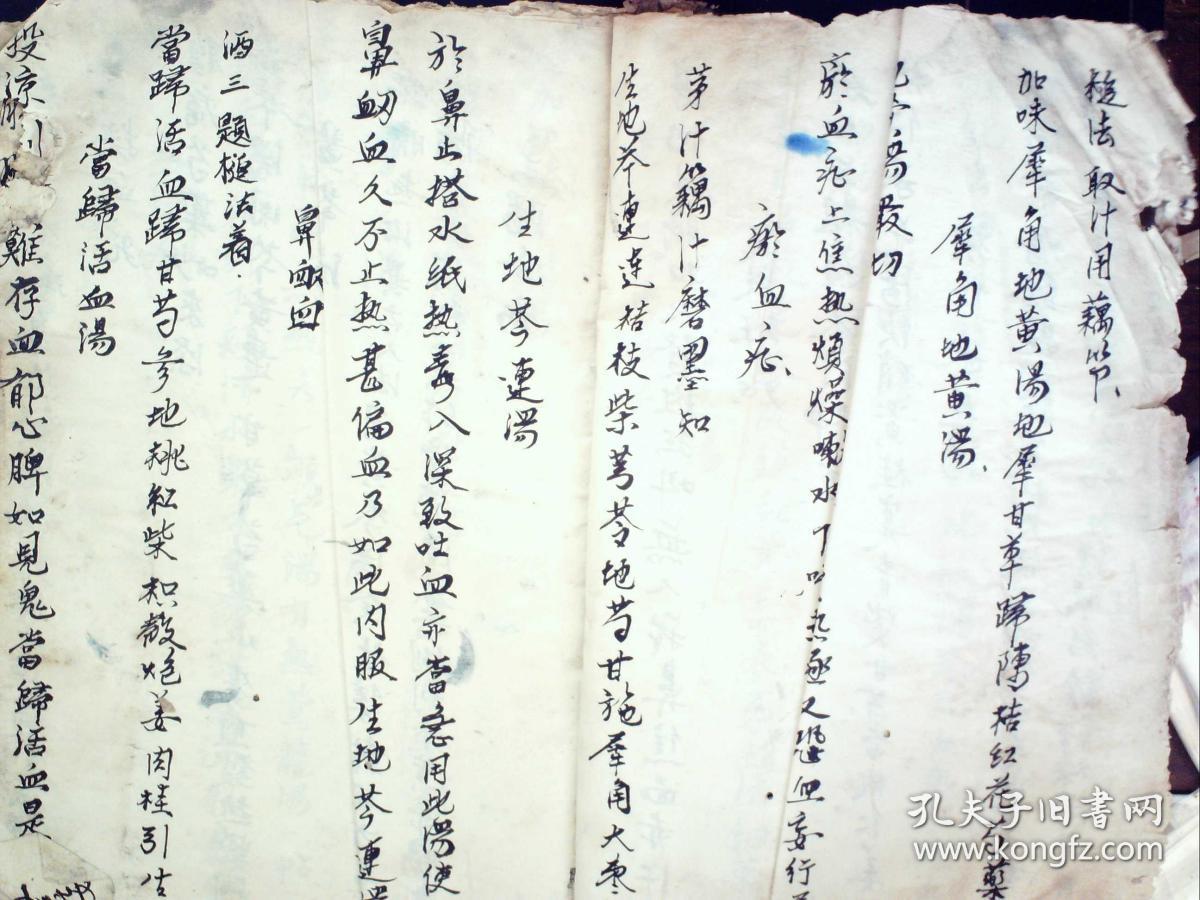 槌法取汁用藕節、
加味犀角地黃湯地犀甘草歸陳桔紅花
犀角地黃湯、
瘀血症上焦热煩燥嗽水 热 又恐血妄行
瘀血症、
茅汁藕汁磨墨知
生地芩連連桔枝柴芎芩地芍甘施犀角大枣
生地芩連湯
於鼻上搭水紙热毒入深致吐血亦當急用此湯使
鼻衂血久不止热甚偏血乃如此内服生地芩連
鼻衂血
酒三題槌法着
當歸活血歸甘芍參地桃紅柴枳殼炮姜肉桂引生
當歸活血湯
投涼 難存血郁心脾如見鬼當歸活血是
孔夫子旧书网
www.kongfz.com